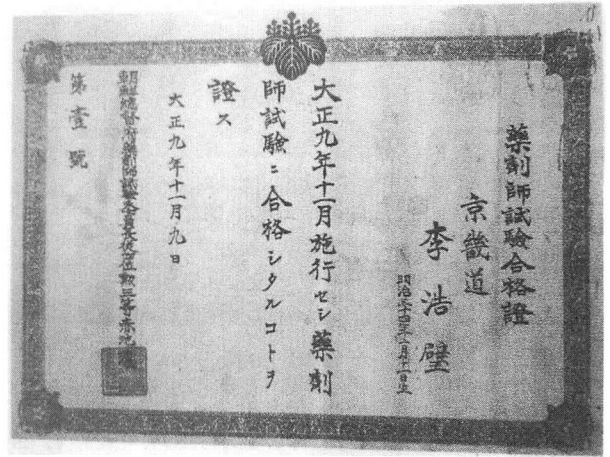 藥劑師試驗合格證
京畿道
李浩璧
明治三十四年一月十一日生
大正九年十一月施行セシ藥劑
師試驗ニ合格シタルコトヲ
證ス
大正九年十一月九日
朝鮮總督府藥劑師試驗委員長從四位勳三等赤池濃
第壹號